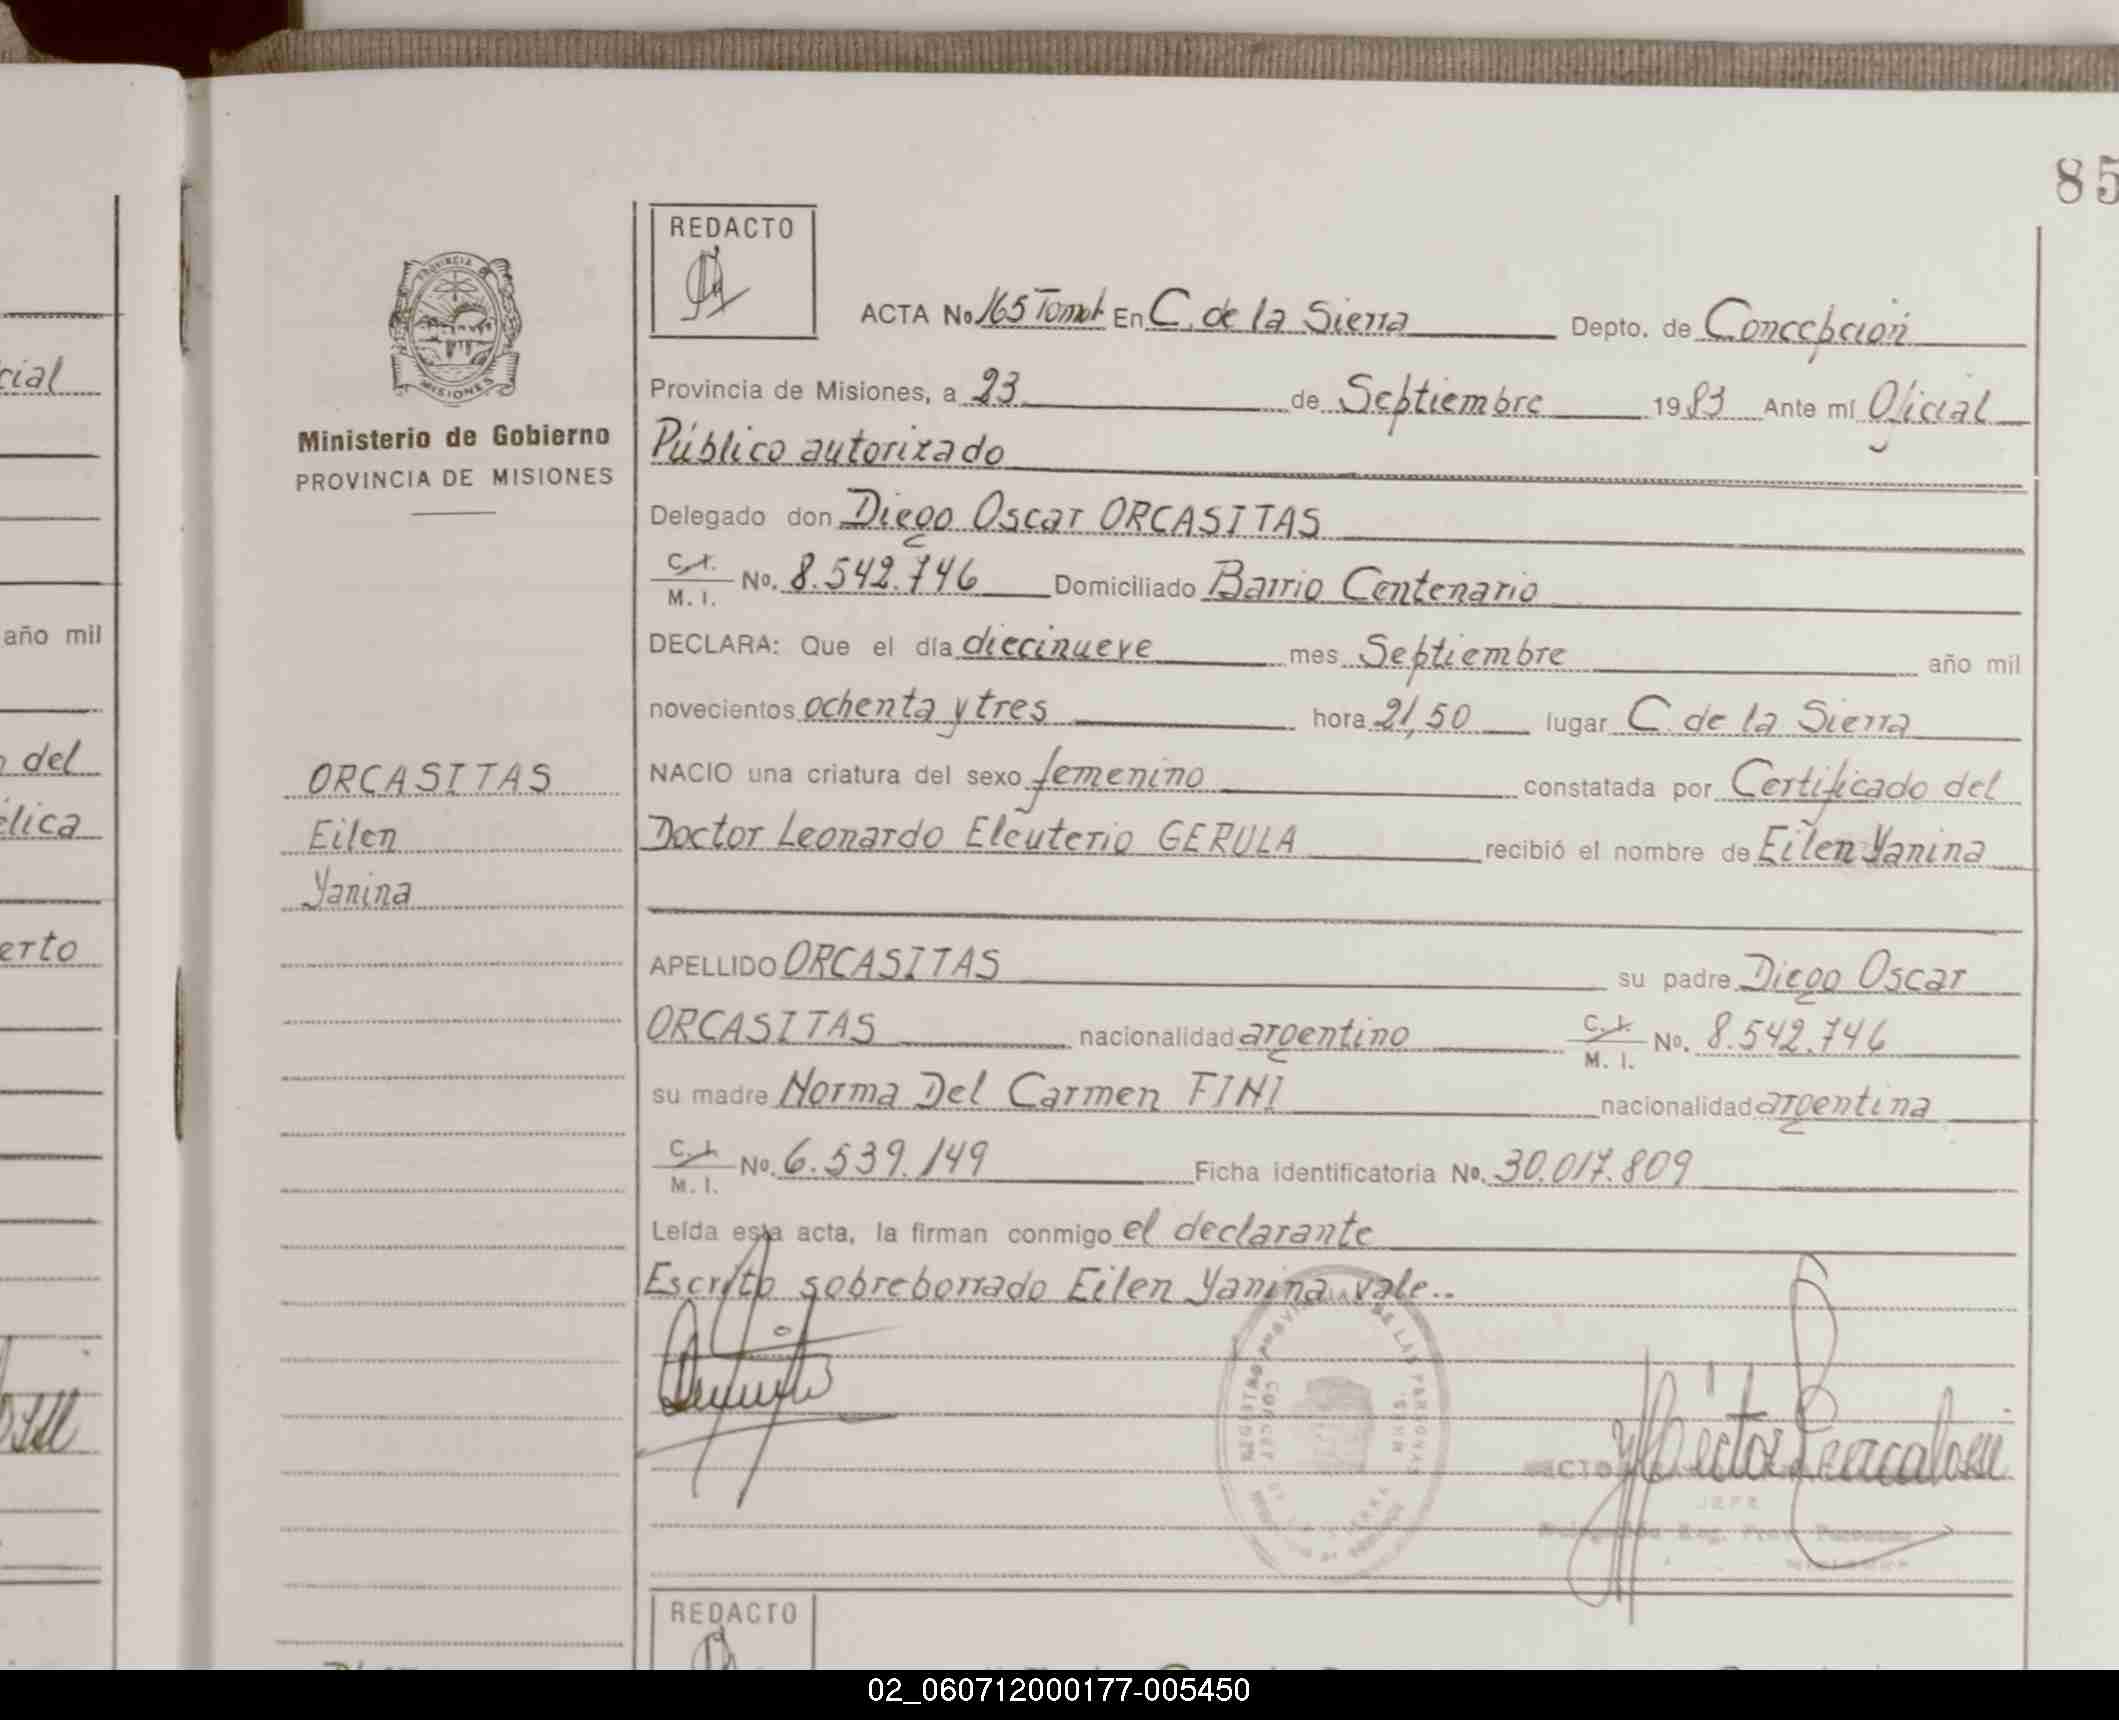 85
REDACTO
PROVINCIA DE
MISIONES
ACTA No 165 Tomo I En C. de la Sierra Depto. de Concepción
Provincia de Misiones, a 23 de Septiembre 1983 Ante mí Oficial
Ministerio de Gobierno
PROVINCIA DE MISIONES
Público autorizado
Delegado don Diego Oscar ORCASITAS
C.I. M. I. No. 8.542.746 Domiciliado Barrio Centenario
DECLARA: Que el día diecinueve mes Septiembre año mil
novecientos ochenta y tres hora 21,50 lugar C. de la Sierra
ORCASITAS
Eilen
Yanina
NACIO una criatura del sexo femenino constatada por Certificado del
Doctor Leonardo Eleuterio GERULA recibió el nombre de Eilen Yanina
APELLIDO ORCASITAS su padre Diego Oscar
ORCASITAS nacionalidad argentino C.I. M. I. No. 8.542.746
su madre Norma Del Carmen FINI nacionalidad argentina
C.I. M. I. No. 6.539.149 Ficha identificatoria No. 30.017.809
Leída esta acta, la firman conmigo el declarante
Escrito sobreborrado Eilen Yanina vale..
JEFE
REDACTO
cial
año mil
del
élica
erto
02_060712000177-005450